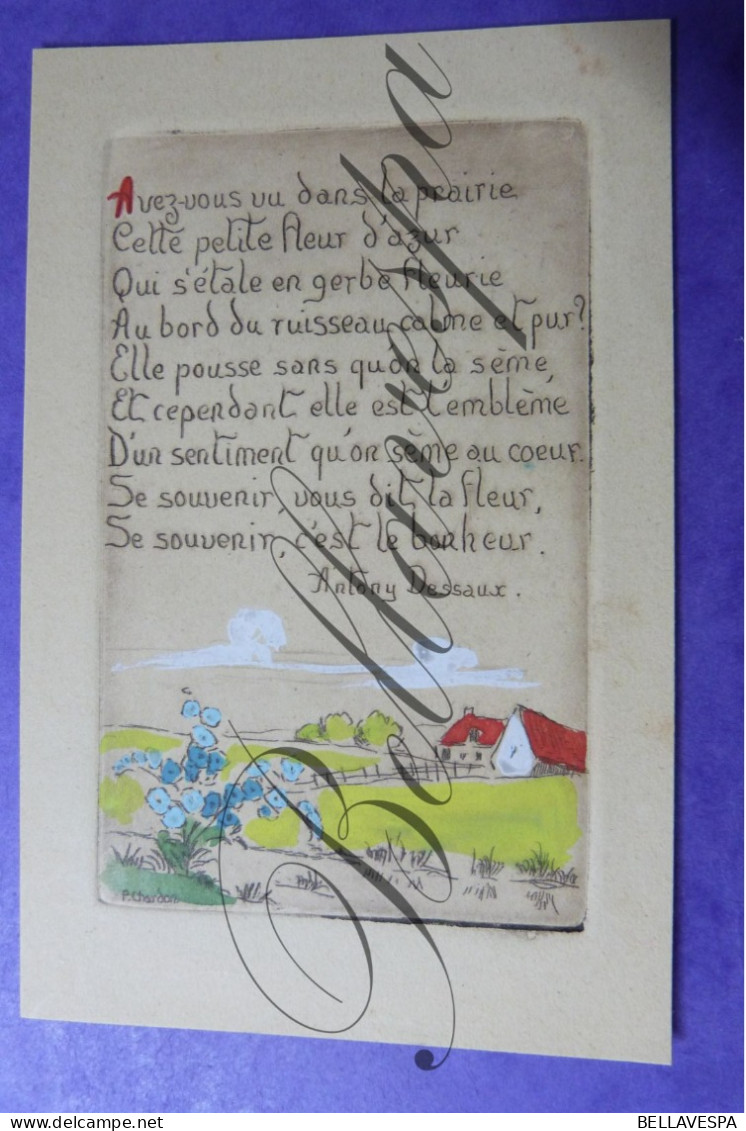 Avez-vous vu dans la prairie
Cette petite fleur d'azur
Qui s'étale en gerbe fleurie
Au bord du ruisseau calme et pur?
Elle pousse sans qu'on la sème,
Et cependant elle est l'emblème
D'un sentiment qu'on sème au coeur.
Se souvenir, vous dit la fleur,
Se souvenir, c'est le bonheur.
Antony Dessaux.
P. Chardon
Bellavespa
BELLAVESPA